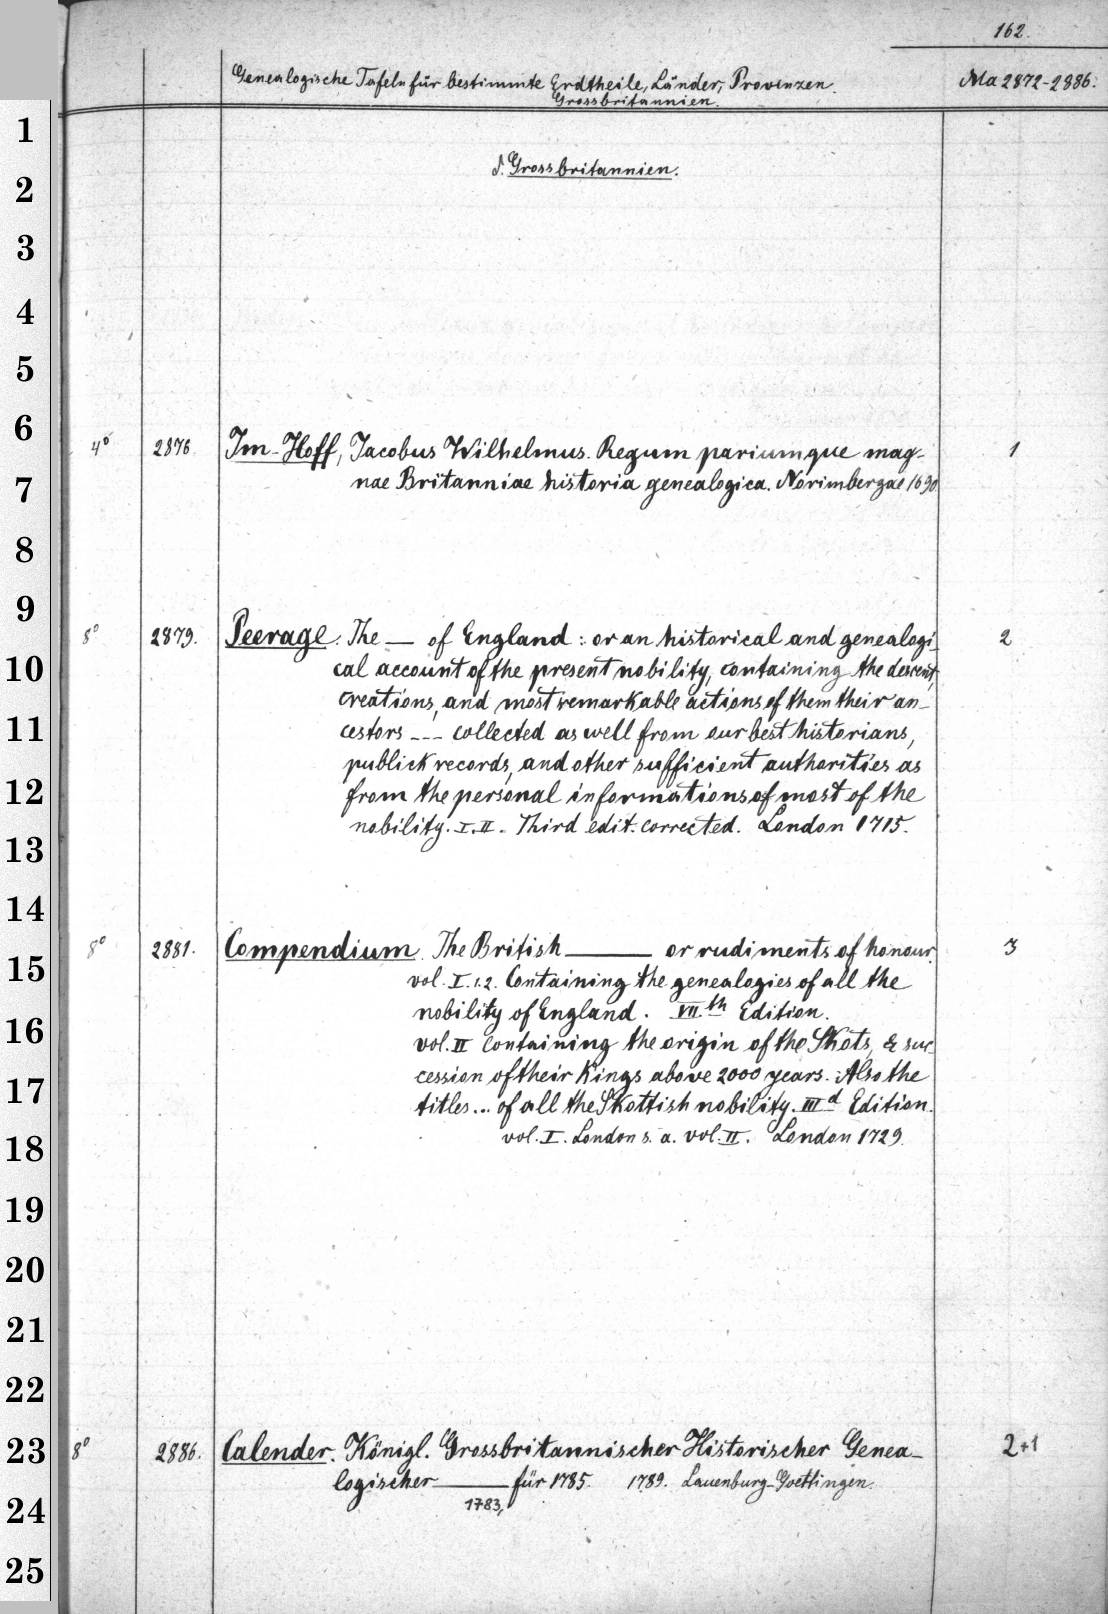 162.
Genealogische Tafeln für bestimmte Erdtheile, Länder, Provinzen. Ma 2872-2886.
Grossbritannien.
1
d. Grossbritannien.
2
3
4
5
6
4° 2876 Im-Hoff, Jacobus Wilhelmus. Regum pariumque mag- 1
7 nae Britanniae historia genealogica. Norimbergae 1690
8
9
8° 2879. Peerage. The — of England : or an historical and genealogi- 2
10 cal account of the present nobility, containing the descent,
creations, and most remarkable actions of them their an-
11 cestors --- collected as well from our best historians,
publick records, and other sufficient authorities as
12 from the personal informations of most of the
nobility. I. II. Third edit. corrected. London 1715.
13
14
8° 2881. Compendium. The British —— or rudiments of honour. 3
15 vol. I. 1.2. Containing the genealogies of all the
nobility of England. VII th Edition.
16 vol. II containing the origin of the Skots, & suc-
cession of their Kings above 2000 years. Also the
17 titles... of all the Skottish nobility. III d Edition.
vol. I. London s. a. vol. II. London 1729.
18
19
20
21
22
23 8° 2886. Calender. Königl. Grossbritannischer Historischer Genea- 2+1
logischer —— für 1785. 1789. Lauenburg-Goettingen.
24 1783,
25